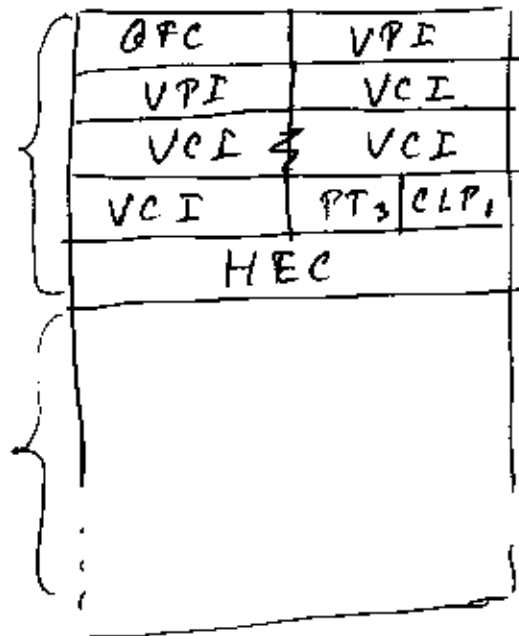 GFC VPI
VPI VCI
VCI VCI
VCI PT3 CLP1
HEC